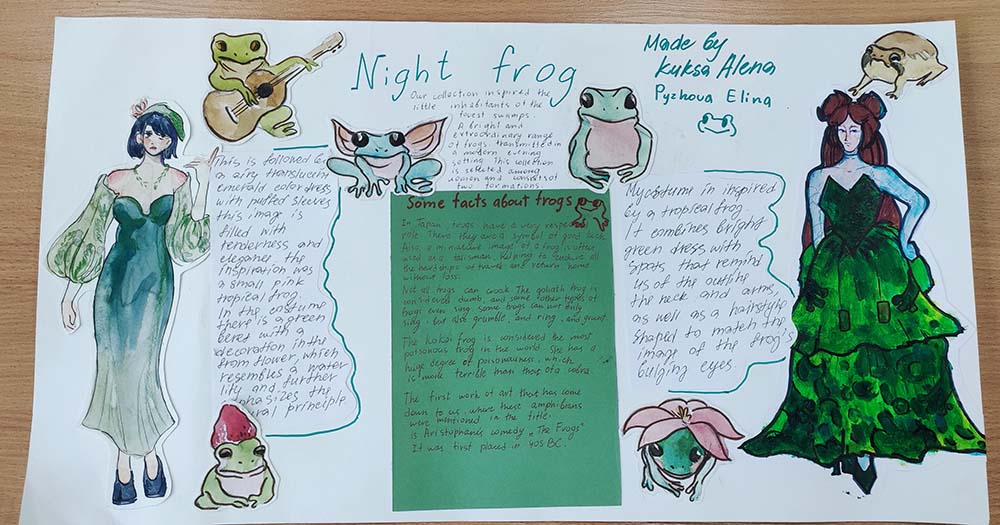 Night frog
Our collection inspired the
little inhabitants of the
forest swamps.
A bright and
extraordinary range
of frogs transmitted in
a modern evening
setting. This collection
is selected among
women and consists of
two formations.
Made by
Kuksa Alena
Pyzhova Elina
This is followed by
an airy translucent
emerald color dress
with puffed sleeves
this image is
filled with
tenderness and
elegance the
inspiration was
a small pink
tropical frog.
In the costume
there is a green
bered with a
decoration in the
from flower, which
resembles a water
lily and further
emphasizes the
principle
Some facts about frogs
In Japan, frogs have a very respected
role. There they are a symbol of good luck.
Also, a miniature image of a frog is often
used as a talisman, helping to endure all
the hardships of travel and return home
without loss.
Not all frogs can croak. The goliath frog is
considered dumb, and some other types of
frogs even sing. Some frogs can not only
sing, but also grumble, and ring, and grunt.
The kokoi frog is considered the most
poisonous frog in the world. She has a
huge degree of poisonousness, which
is more terrible than that of a cobra.
The first work of art that has come
down to us, where these amphibians
were mentioned in the title,
is Aristophanes comedy "The Frogs"
It was first placed in 405 BC.
My costume in inspired
by a tropical frog.
It combines bright
green dress with
spots that remind
us of the outline
the neck and arms,
as well as a hairstyle
shaped to match the
image of the frog's
bulging eyes.